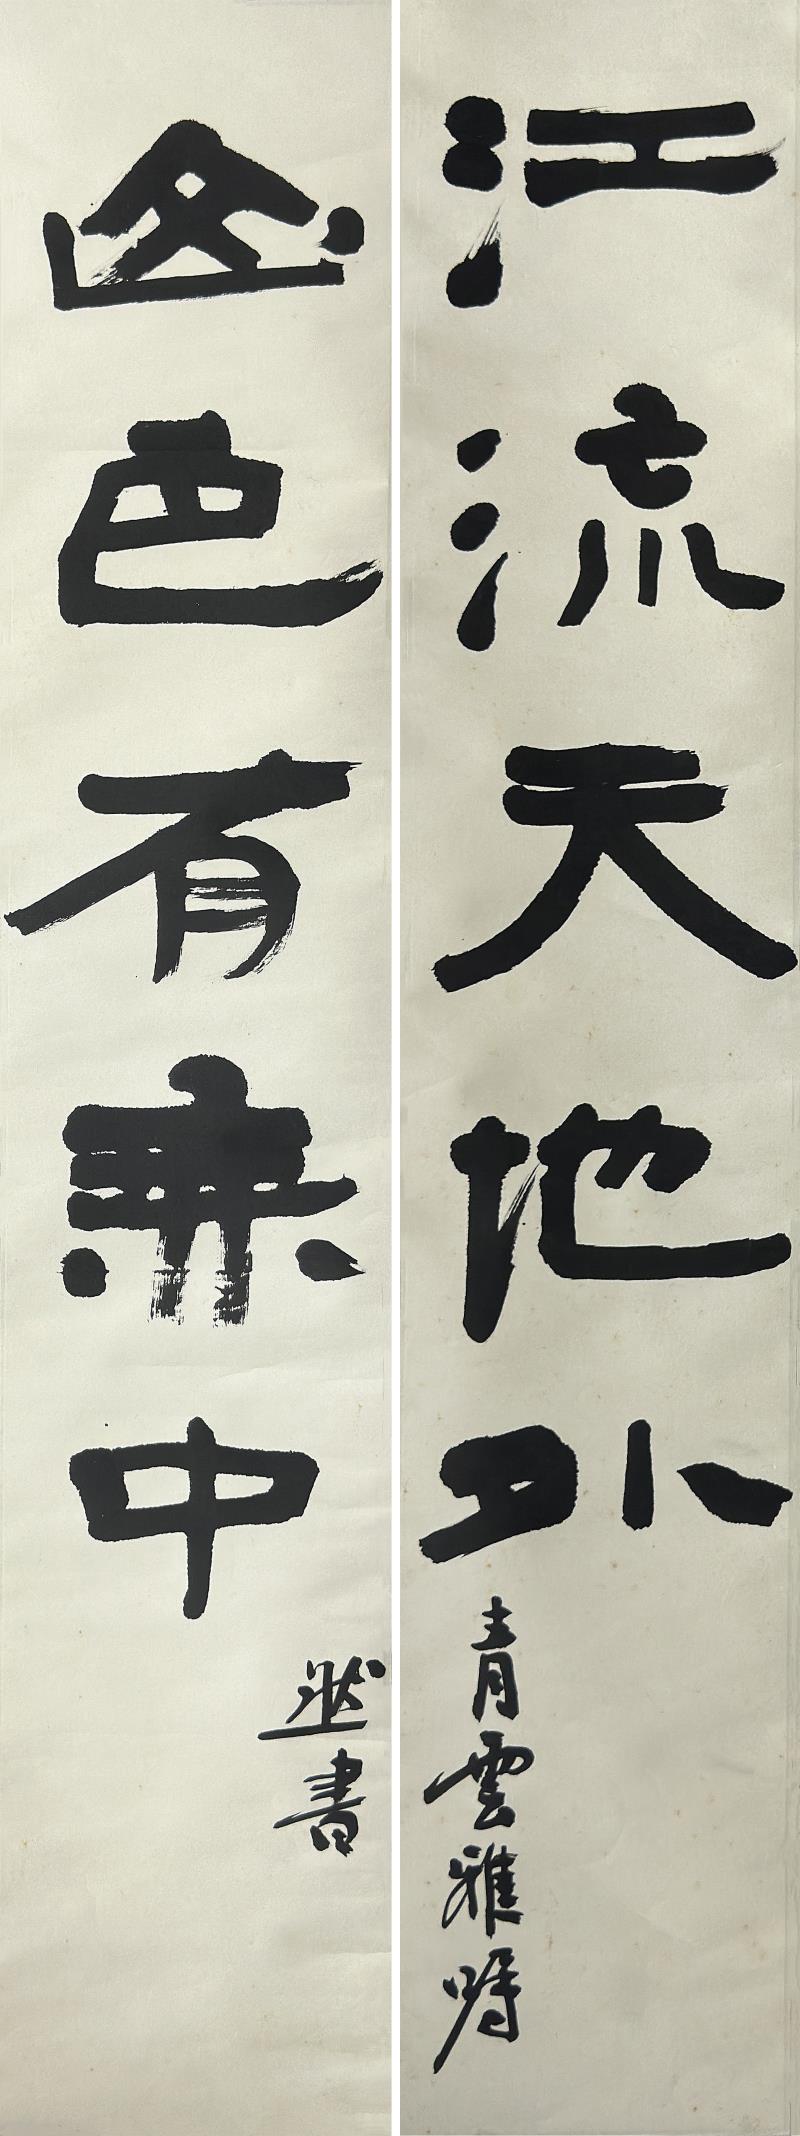 江流天地外
青雲雅嘱
山色有無中
書